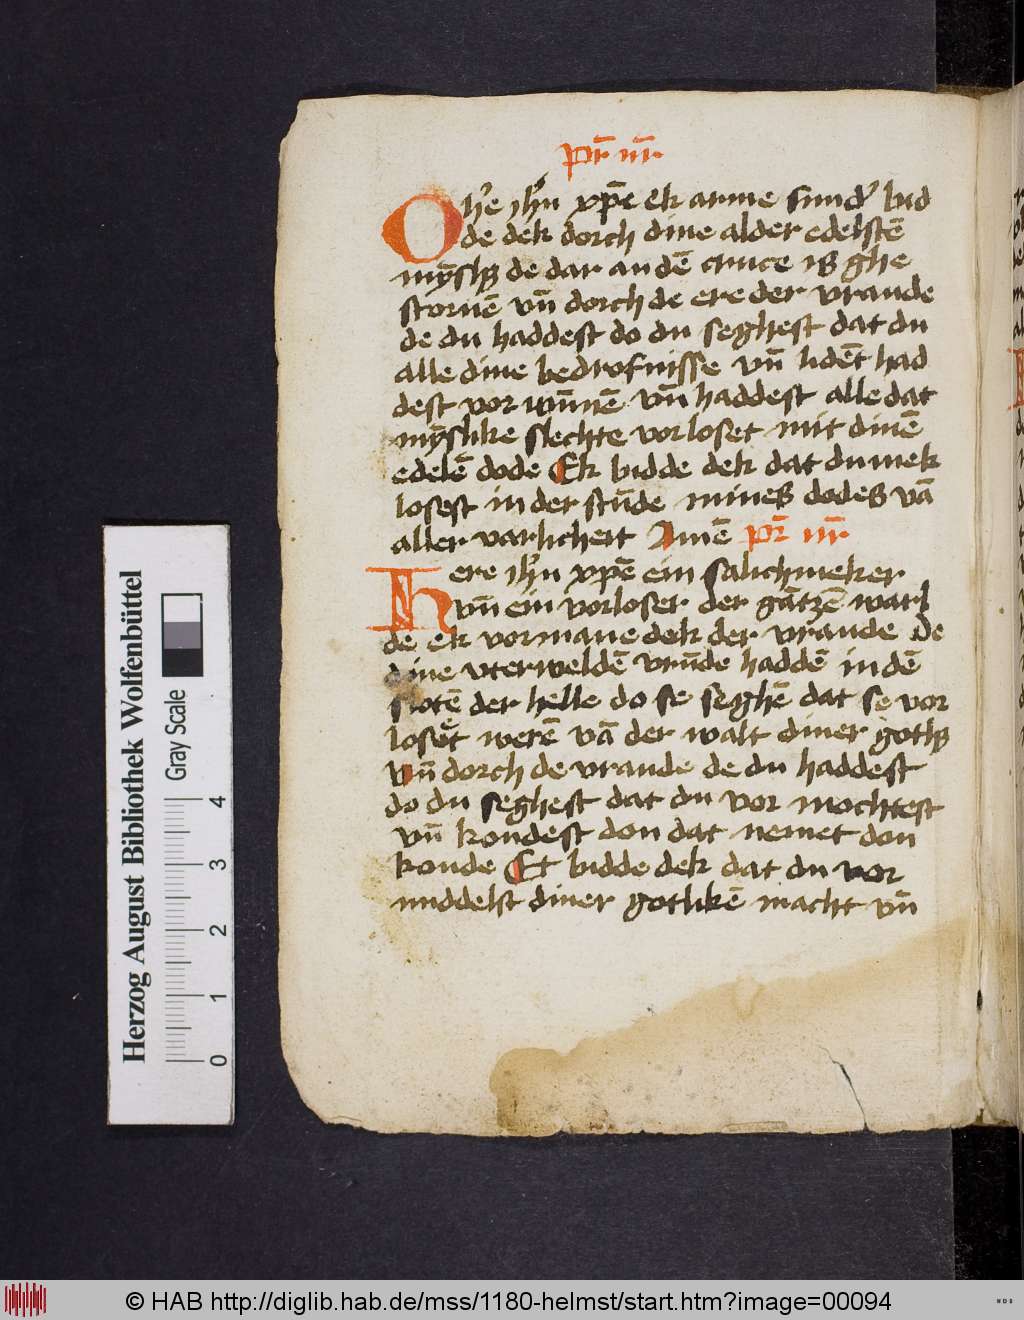 pr̄ nr̄
O hˀe ih̄u xp̄e ek arme sundˀ bid
de dek dorch dine alder edelstē
mȳsh͛ de dar an dē cruce is ghe
storuē vn̄ dorch de ere der vraude
de du haddest do du seghest dat du
alle dine bedrofnisse vn̄ lidēt had
dest vor wn̄nē vn̄ haddest alle dat
mȳslike slechte vorloset mit dinē
edelē dode Ek bidde dek dat du mek
losest in der stūde mines dodes vā
aller varlicheit Amē pr̄ nr̄
Here ih̄u xp̄e ein salichmeker
vn̄ ein vorloser der gātzē warl
de ek vormane dek der vraude de
dine vterweldē vrūde haddē in dē
sloten der helle do se seghē dat se vor
loset werē vā der walt diner
vn̄ dorch de vraude de du haddest
do du seghest dat du vor mochtest
vn̄ kondest don dat nemet don
konde Ek bidde dek dat du vor
middelst diner gotlikē macht vn̄
Herzog August Bibliothek Wolfenbüttel
Gray Scale
0 1 2 3 4
© HAB http://diglib.hab.de/mss/1180-helmst/start.htm?image=00094